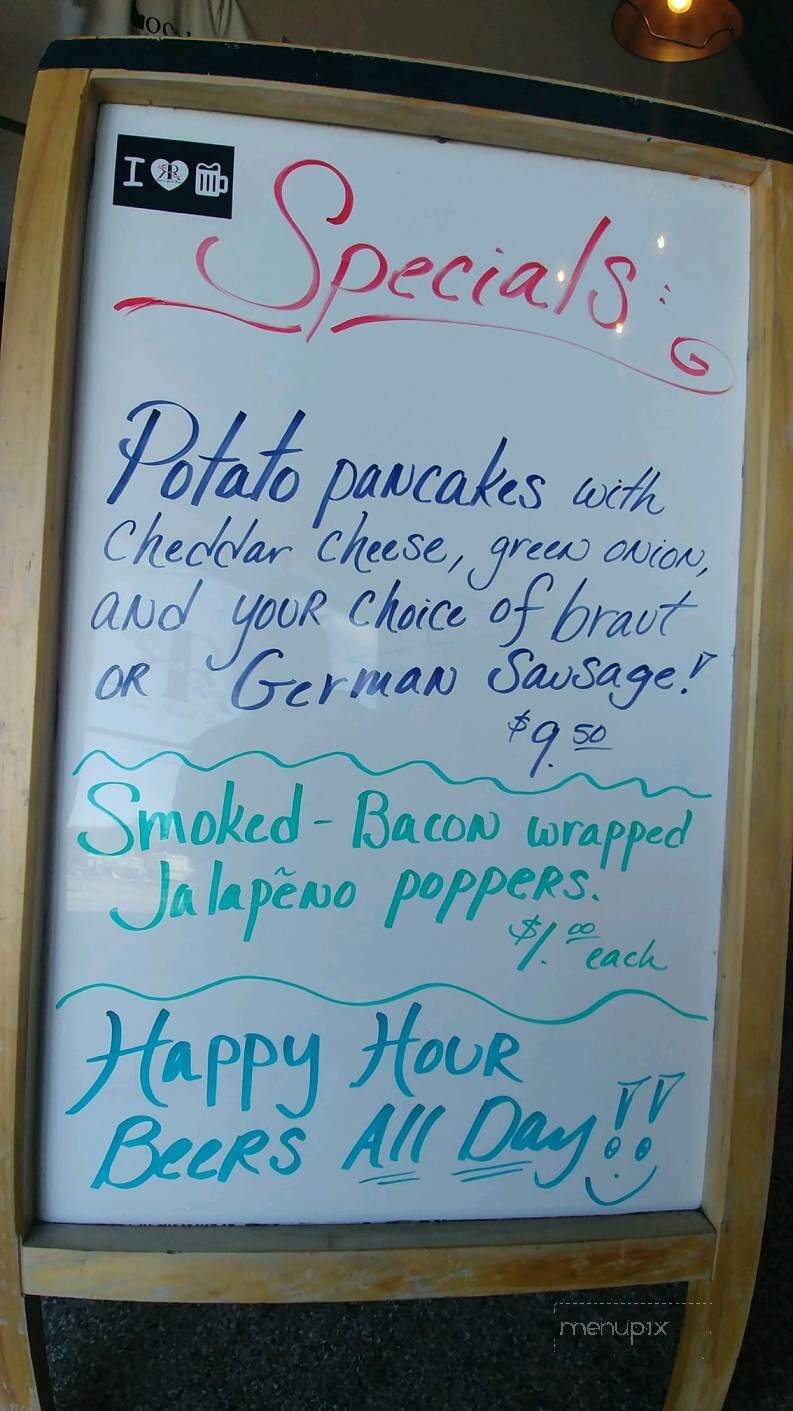 I
Specials:
Potato pancakes with
Cheddar cheese, green onion,
and your choice of braut
or German Sausage!
$9.50
Smoked-Bacon wrapped
Jalapẽno poppers.
$1.00 each
Happy Hour
Beers All Day!!
menupix